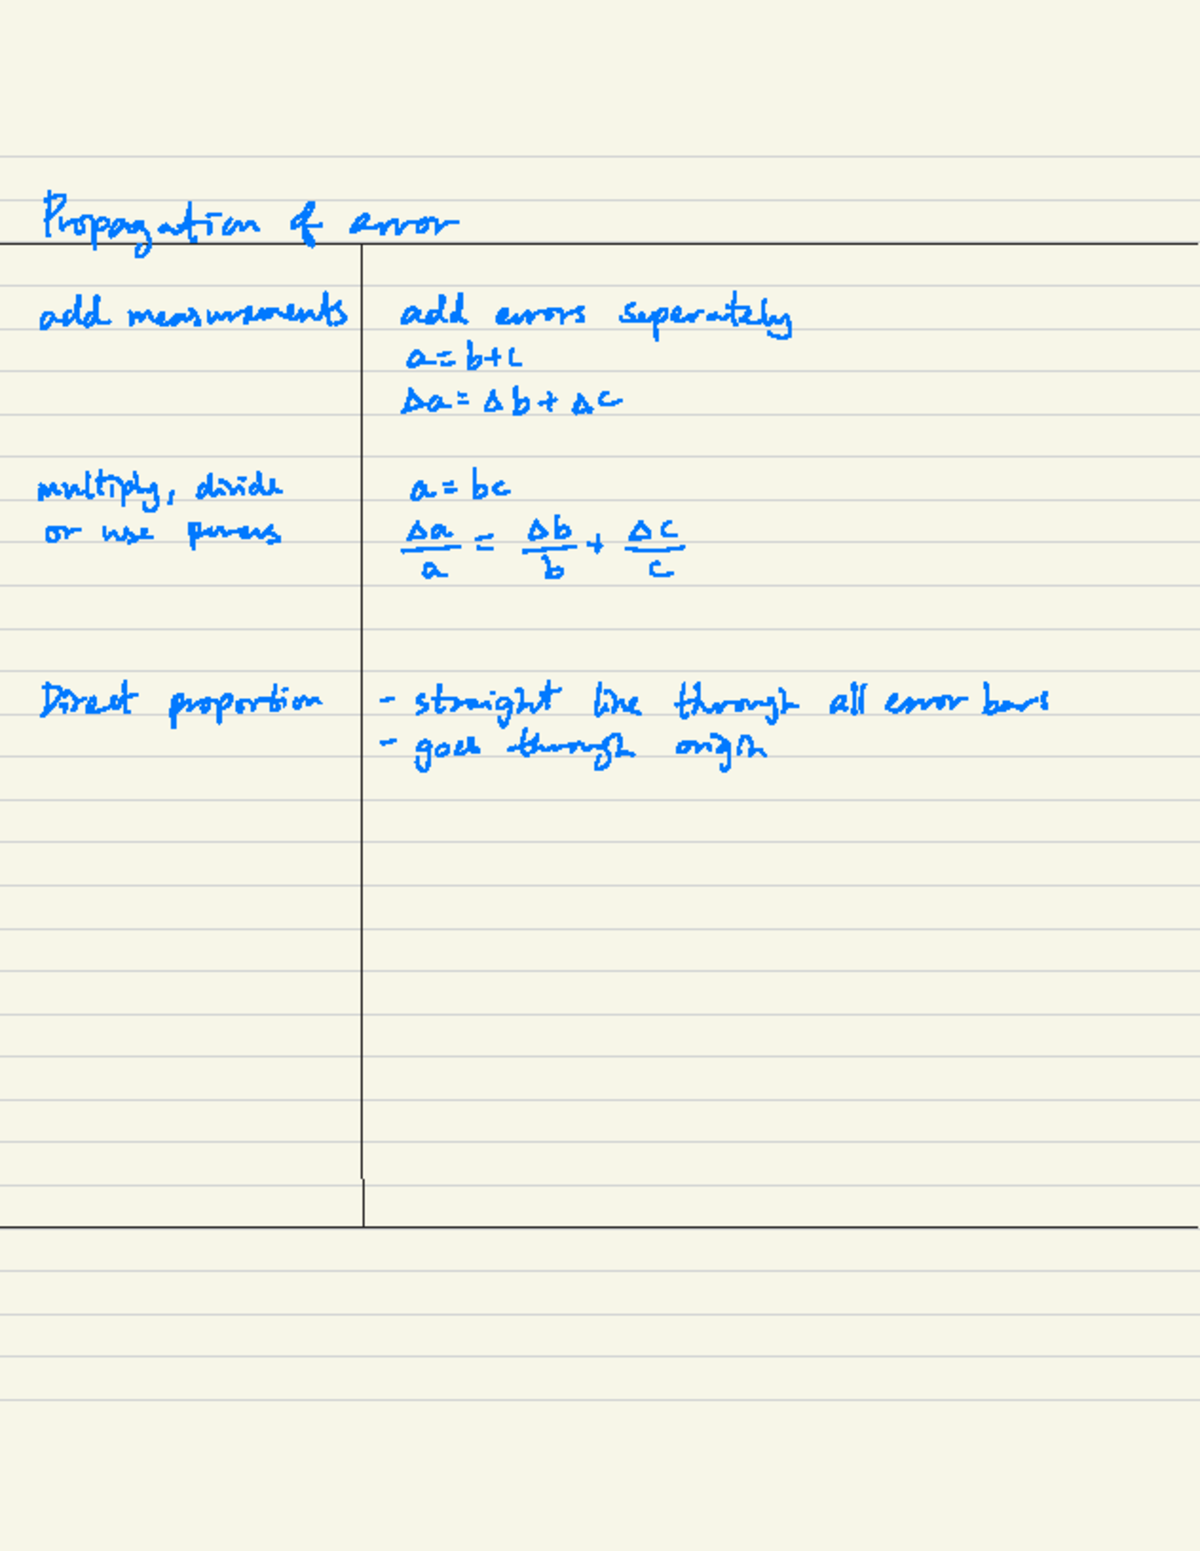 Propagation of error
add measurements
add errors seperately
a = b+c
Δa = Δb + Δc
multiply, divide
or use powers
a = bc
Δa/a = Δb/b + Δc/c
Direct proportion
- straight line through all error bars
- goes through origin